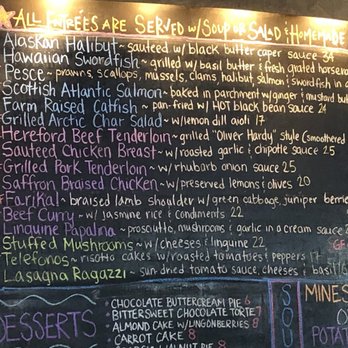 ALL ENTRÉES ARE SERVED w/SOUP OR SALAD & HOMEMADE
ALASKAN HALIBUT ~ sauteed w/ black butter caper sauce 34
HAWAIIAN SWORDFISH ~ grilled w/ basil butter & fresh grated horseradish
PESCE ~ prawns, scallops, mussels, clams, halibut, salmon & swordfish in a
SCOTTISH ATLANTIC SALMON ~ baked in parchment w/ginger & mustard butter
FARM RAISED CATFISH ~ pan-fried w/ HOT black bean sauce 24
GRILLED ARCTIC CHAR SALAD ~ w/lemon dill aioli 17
HEREFORD BEEF TENDERLOIN ~ grilled "Oliver Hardy" style (smothered
SAUTEED CHICKEN BREAST ~ w/roasted garlic & chipotle sauce 25
GRILLED PORK TENDERLOIN ~ w/rhubarb onion sauce 25
SAFFRON BRAISED CHICKEN ~ w/preserved lemons & olives 20
FARIKAL ~ braised lamb shoulder w/ green cabbage, juniper berries
BEEF CURRY ~ w/ jasmine rice & condiments 22
LINGUINE PAPALINA ~ prosciutto, mushrooms & garlic in a cream sauce
GF
STUFFED MUSHROOMS ~ w/cheeses & linguine 22
TELEFONOS ~ risotto cakes w/roasted tomatoes & peppers 17
LASAGNA RAGAZZI ~ sun dried tomato sauce, cheeses & basil 16
DESSERTS
CHOCOLATE BUTTERCREAM PIE 6
BITTERSWEET CHOCOLATE TORTE 7
ALMOND CAKE w/LINGONBERRIES 8
CARROT CAKE 8
WALNUT PIE
SOU
MINES
POTAT